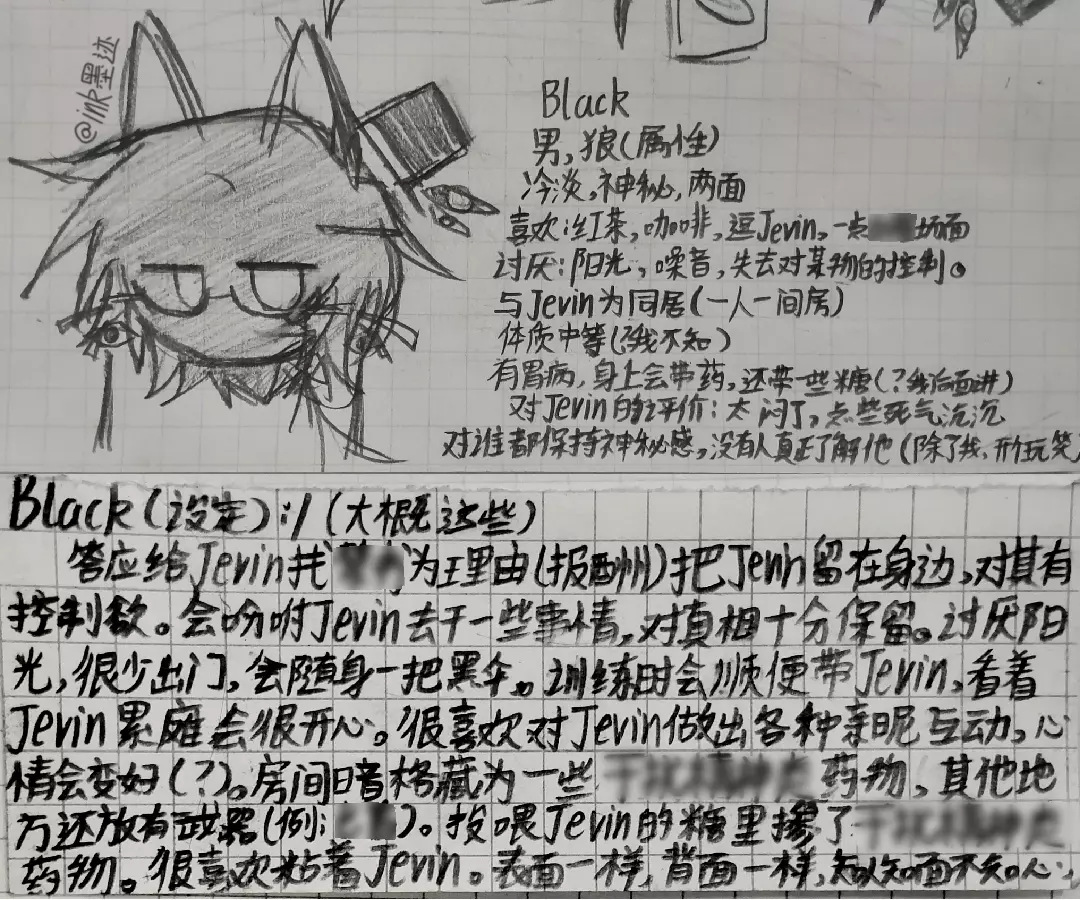 @ink墨迹
Black
男,狼(属性)
冷淡,神秘,两面
喜欢:红茶,咖啡,逗Jevin,一点 场面
讨厌:阳光,噪音,失去对某物的控制。
与Jevin为同居(一人一间房)
体质中等(?我不知)
有胃病,身上会带药,还带一些糖(?我后面讲)
对Jevin的评价:太闷了,点些死气沉沉
对谁都保持神秘感,没有人真正了解他(除了我,开玩笑
Black(设定):/(大概这些)
答应给Jevin找 为理由(报酬州)把Jevin留在身边,对其有
控制欲。会吩咐Jevin去干一些事情,对真相十分保留。讨厌阳
光,很少出门,会随身一把黑伞。训练时会顺便带Jevin,看着
Jevin累瘫会很开心。很喜欢对Jevin做出各种亲昵互动,心
情会变好(?)。房间暗格藏为一些 药物,其他地
方还放有武器(例: )。投喂Jevin的糖里掺了
药物。很喜欢粘着Jevin。表面一样,背面一样,知人知面不知心,